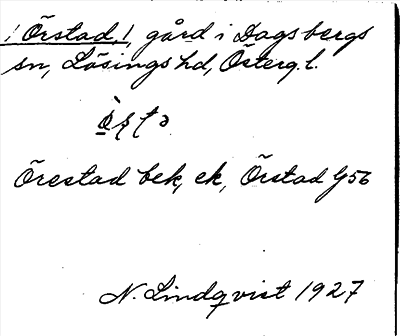 Örstad, gård i Dagsbergs
sn, Lösings hd, Österg. l.
Örestad bek, ek, Örstad G56
N. Lindqvist 1927